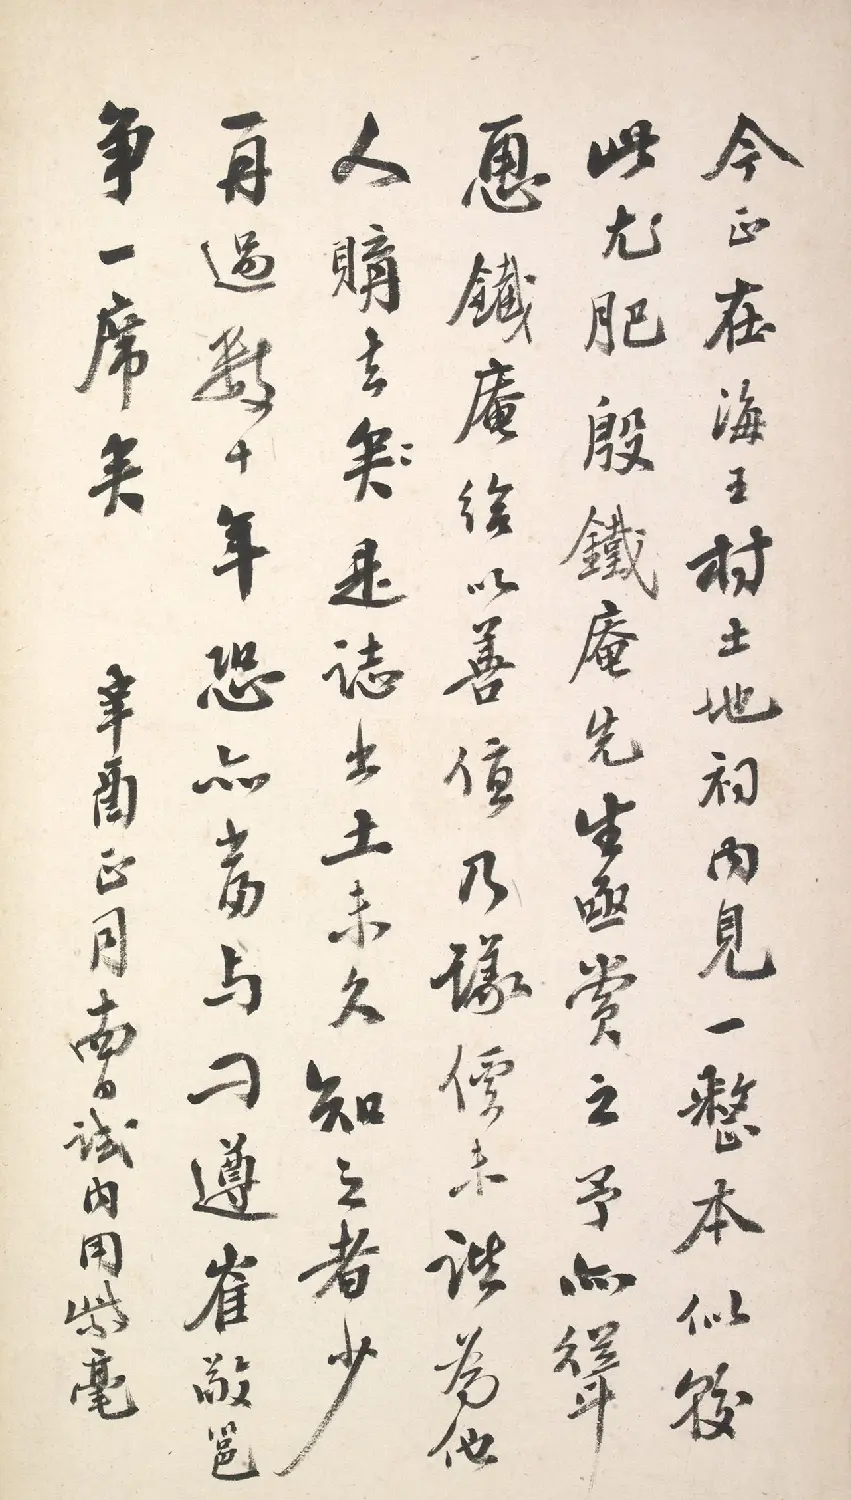 今正在海王村土地祠内見一整本似較
此尤肥殷鐵庵先生亟賞之予亦聳
恿鐵庵給以善值乃議價未諧為他
人購去矣是誌出土未久知之者少
再過數十年恐亦當与刁遵崔敬邕
争一席矣 辛酉正月南試内用紫毫